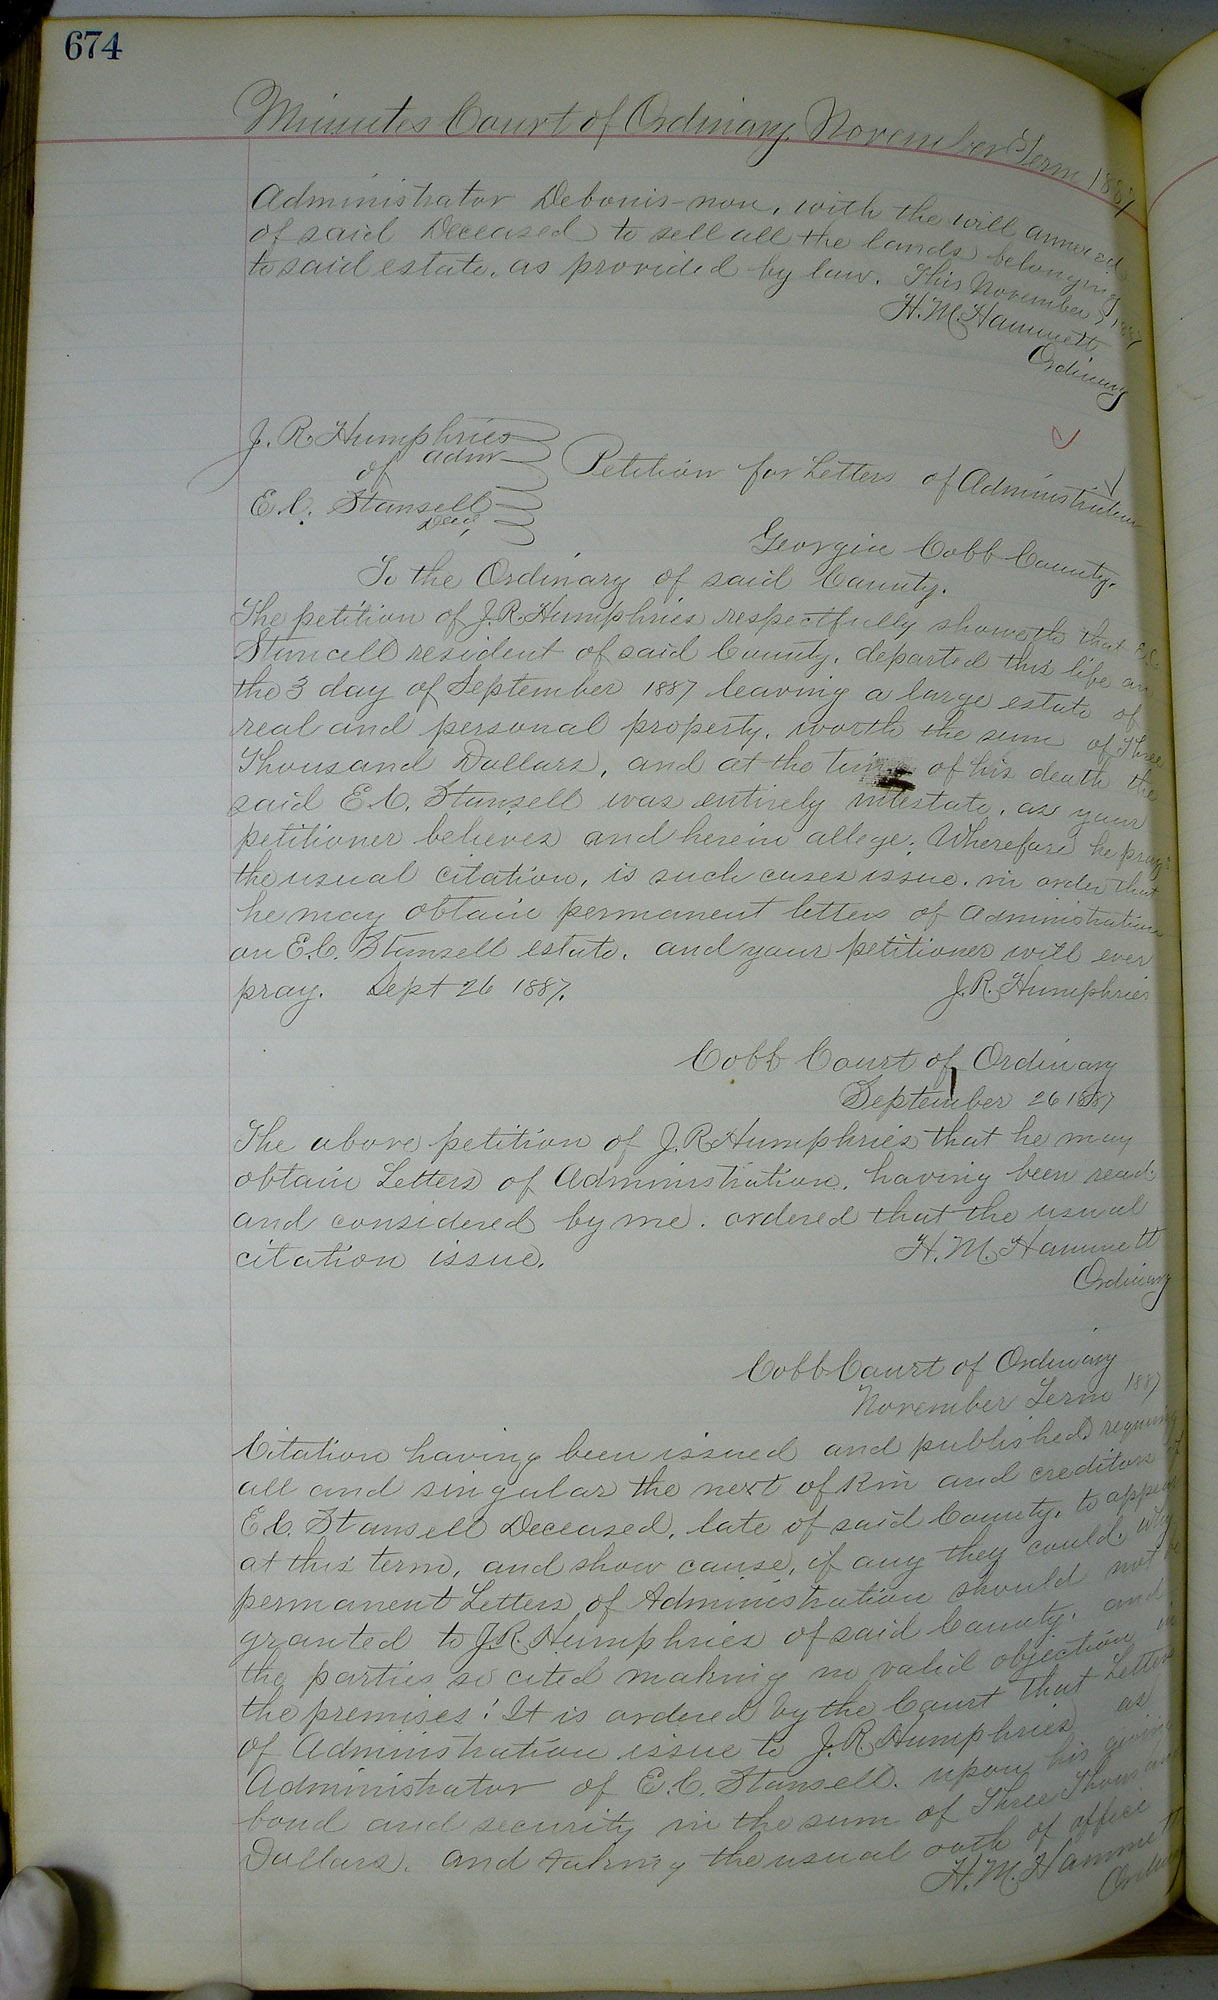 674
Minutes Court of Ordinary November Term 1887
Administrator Debonis-non, with the will annexed
of said Deceased to sell all the lands belonging
to said estate, as provided by law. This November 7 1887
H. M. Hammett
Ordinary
J. R. Humphries
admr
of
E. C. Stansell
Decd,
Petition for Letters of Administration
Georgia Cobb County.
To the Ordinary of said County.
The petition of J. R. Humphries respectfully showeth that E. C.
Stancell resident of said County, departed this life on
the 3 day of September 1887 leaving a large estate of
real and personal property, worth the sum of Three
Thousand Dollars, and at the time of his death the
said E. C. Stansell was entirely intestate, as your
petitioner believes and herein allege; Wherefore he prays
the usual citation, is such cases issue, in order that
he may obtain permanent letters of Administration
on E. C. Stansell estate, and your petitioner will ever
pray. Sept 26 1887. J. R. Humphries
Cobb Court of Ordinary
September 26 1887
The above petition of J. R. Humphries that he may
obtain Letters of Administration, having been read
and considered by me. ordered that the usual
citation issue. H. M. Hammett
Ordinary
Cobb Court of Ordinary
November Term 1887
Citation having been issued and published requiring
all and singular the next of kin and creditors of
E. C. Stansell Deceased, late of said County, to appear
at this term, and show cause, if any they could, why
permanent Letters of Administration should not be
granted to J. R. Humphries of said County, and
the parties so cited making no valid objection in
the premises! It is ordered by the Court that Letters
of Administration issue to J. R. Humphries as
Administrator of E. C. Stansell. upon his giving
bond and security in the sum of Three Thousand
Dollars. and taking the usual oath of office
H. M. Hammett
Ordinary